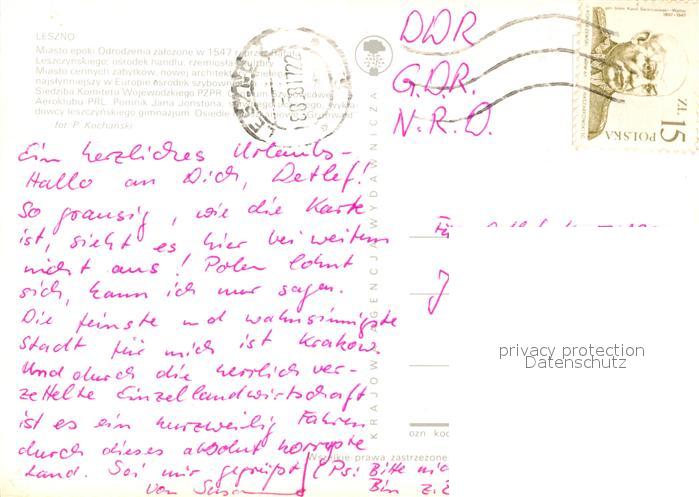 LESZNO
Miasto epoki Odrodzenia założone w 1547
Leszczyńskiego; ośrodek handlu, rzemiosła
Miasto cennych zabytków, nowej architektury
najsłynniejszy w Europie ośrodek szybow
Siedziba Komitetu Wojewódzkiego PZPR
Aeroklubu PRL. Pomnik Jana Jonstona,
dowcy leszczyńskiego gimnazjum. Osiedle Grunwald
fot. P. Kochański
DDR
G.D.R.
N.R.D.
ZŁ 15
POLSKA
Ein herzliches Urlaubs-
Hallo an Dich, Detlef!
So grausig, wie die Karte
ist, sieht es hier bei weitem
nicht aus! Polen lohnt
sich, kann ich nur sagen.
Die feinste und wahnsinnigste
Stadt für mich ist Kraków.
Und durch die herrlich ver-
zettelte Einzellandwirtschaft
ist es ein kurzweilig Fahren
durch dieses absolut korrupte
Land. Sei mir gegrüßt (Ps: Bitte
von Bin
KRAJOWA AGENCJA WYDAWNICZA
Wszelkie prawa zastrzeżone
privacy protection
Datenschutz